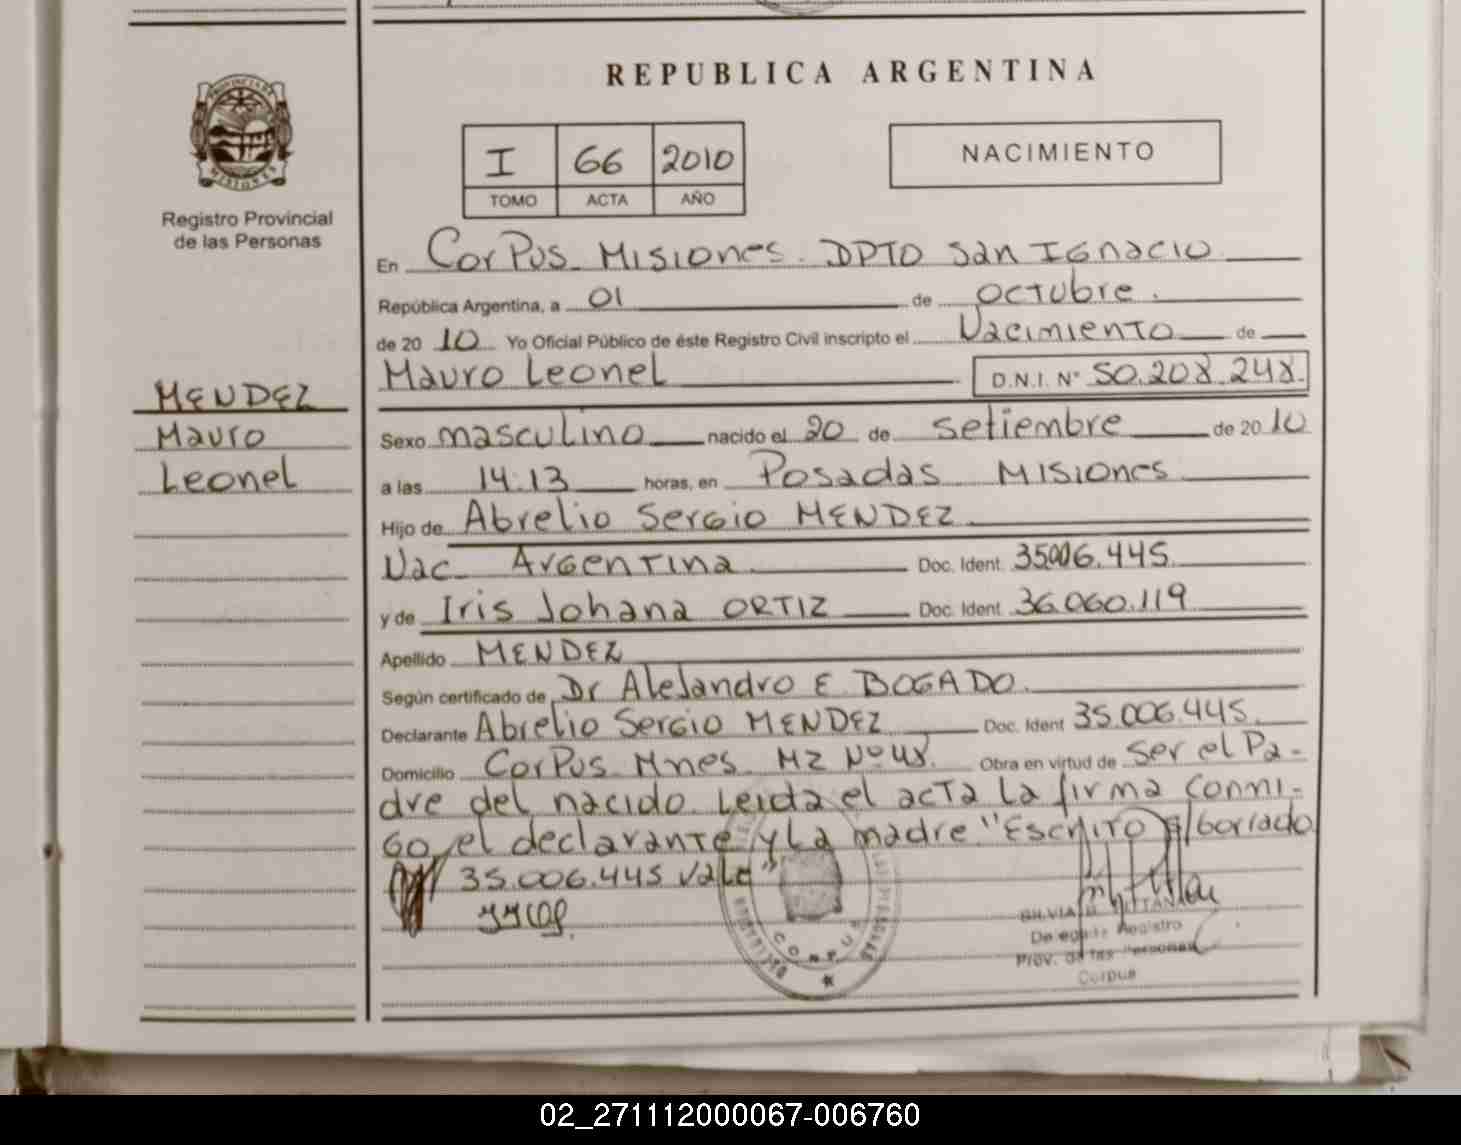 REPUBLICA ARGENTINA
PROVINCIA DE
MISIONES
Registro Provincial
de las Personas
I 66 2010
TOMO ACTA AÑO
NACIMIENTO
En Corpus Misiones. DPTO San Ignacio
República Argentina, a 01 de octubre.
de 2010 Yo Oficial Público de éste Registro Civil inscripto el Nacimiento de
Mauro Leonel D.N.I. N° 50.208.248.
MENDEZ
Mauro
Leonel
Sexo masculino nacido el 20 de setiembre de 2010
a las 14:13 horas, en Posadas Misiones
Hijo de Abrelio Sergio MENDEZ
Nac. Argentina Doc. Ident. 35006.445
y de Iris Johana ORTIZ Doc. Ident 36.060.119
Apellido MENDEZ
Según certificado de Dr Alejandro E. BOGADO.
Declarante Abrelio Sergio MENDEZ Doc. Ident 35.006.445.
Domicilio Corpus Mnes Mz Nº 48. Obra en virtud de ser el Pa-
dre del nacido. Leida el acta la firma conmi-
go, el declarante y la madre "Escrito s/borrado
35.006.445 vale"
CORPUS
Delegada Registro
Prov. de las Personas
Corpus
02_271112000067-006760